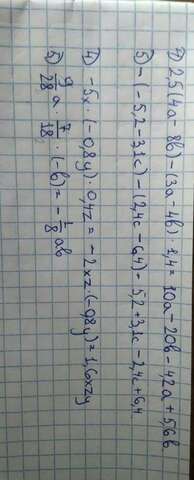 4) -5x · (-0,8y) · 0,4z = -2xz · (-0,8y) = 1,6xzy
5) 9/28 a · 7/18 · (-b) = -1/8 ab
4) 2,5(4a - 8b) - (3a - 4b) · 1,4 = 10a - 20b - 4,2a + 5,6b
5) -(-5,2 - 3,1c) - (2,4c - 6,4) = 5,2 + 3,1c - 2,4c + 6,4